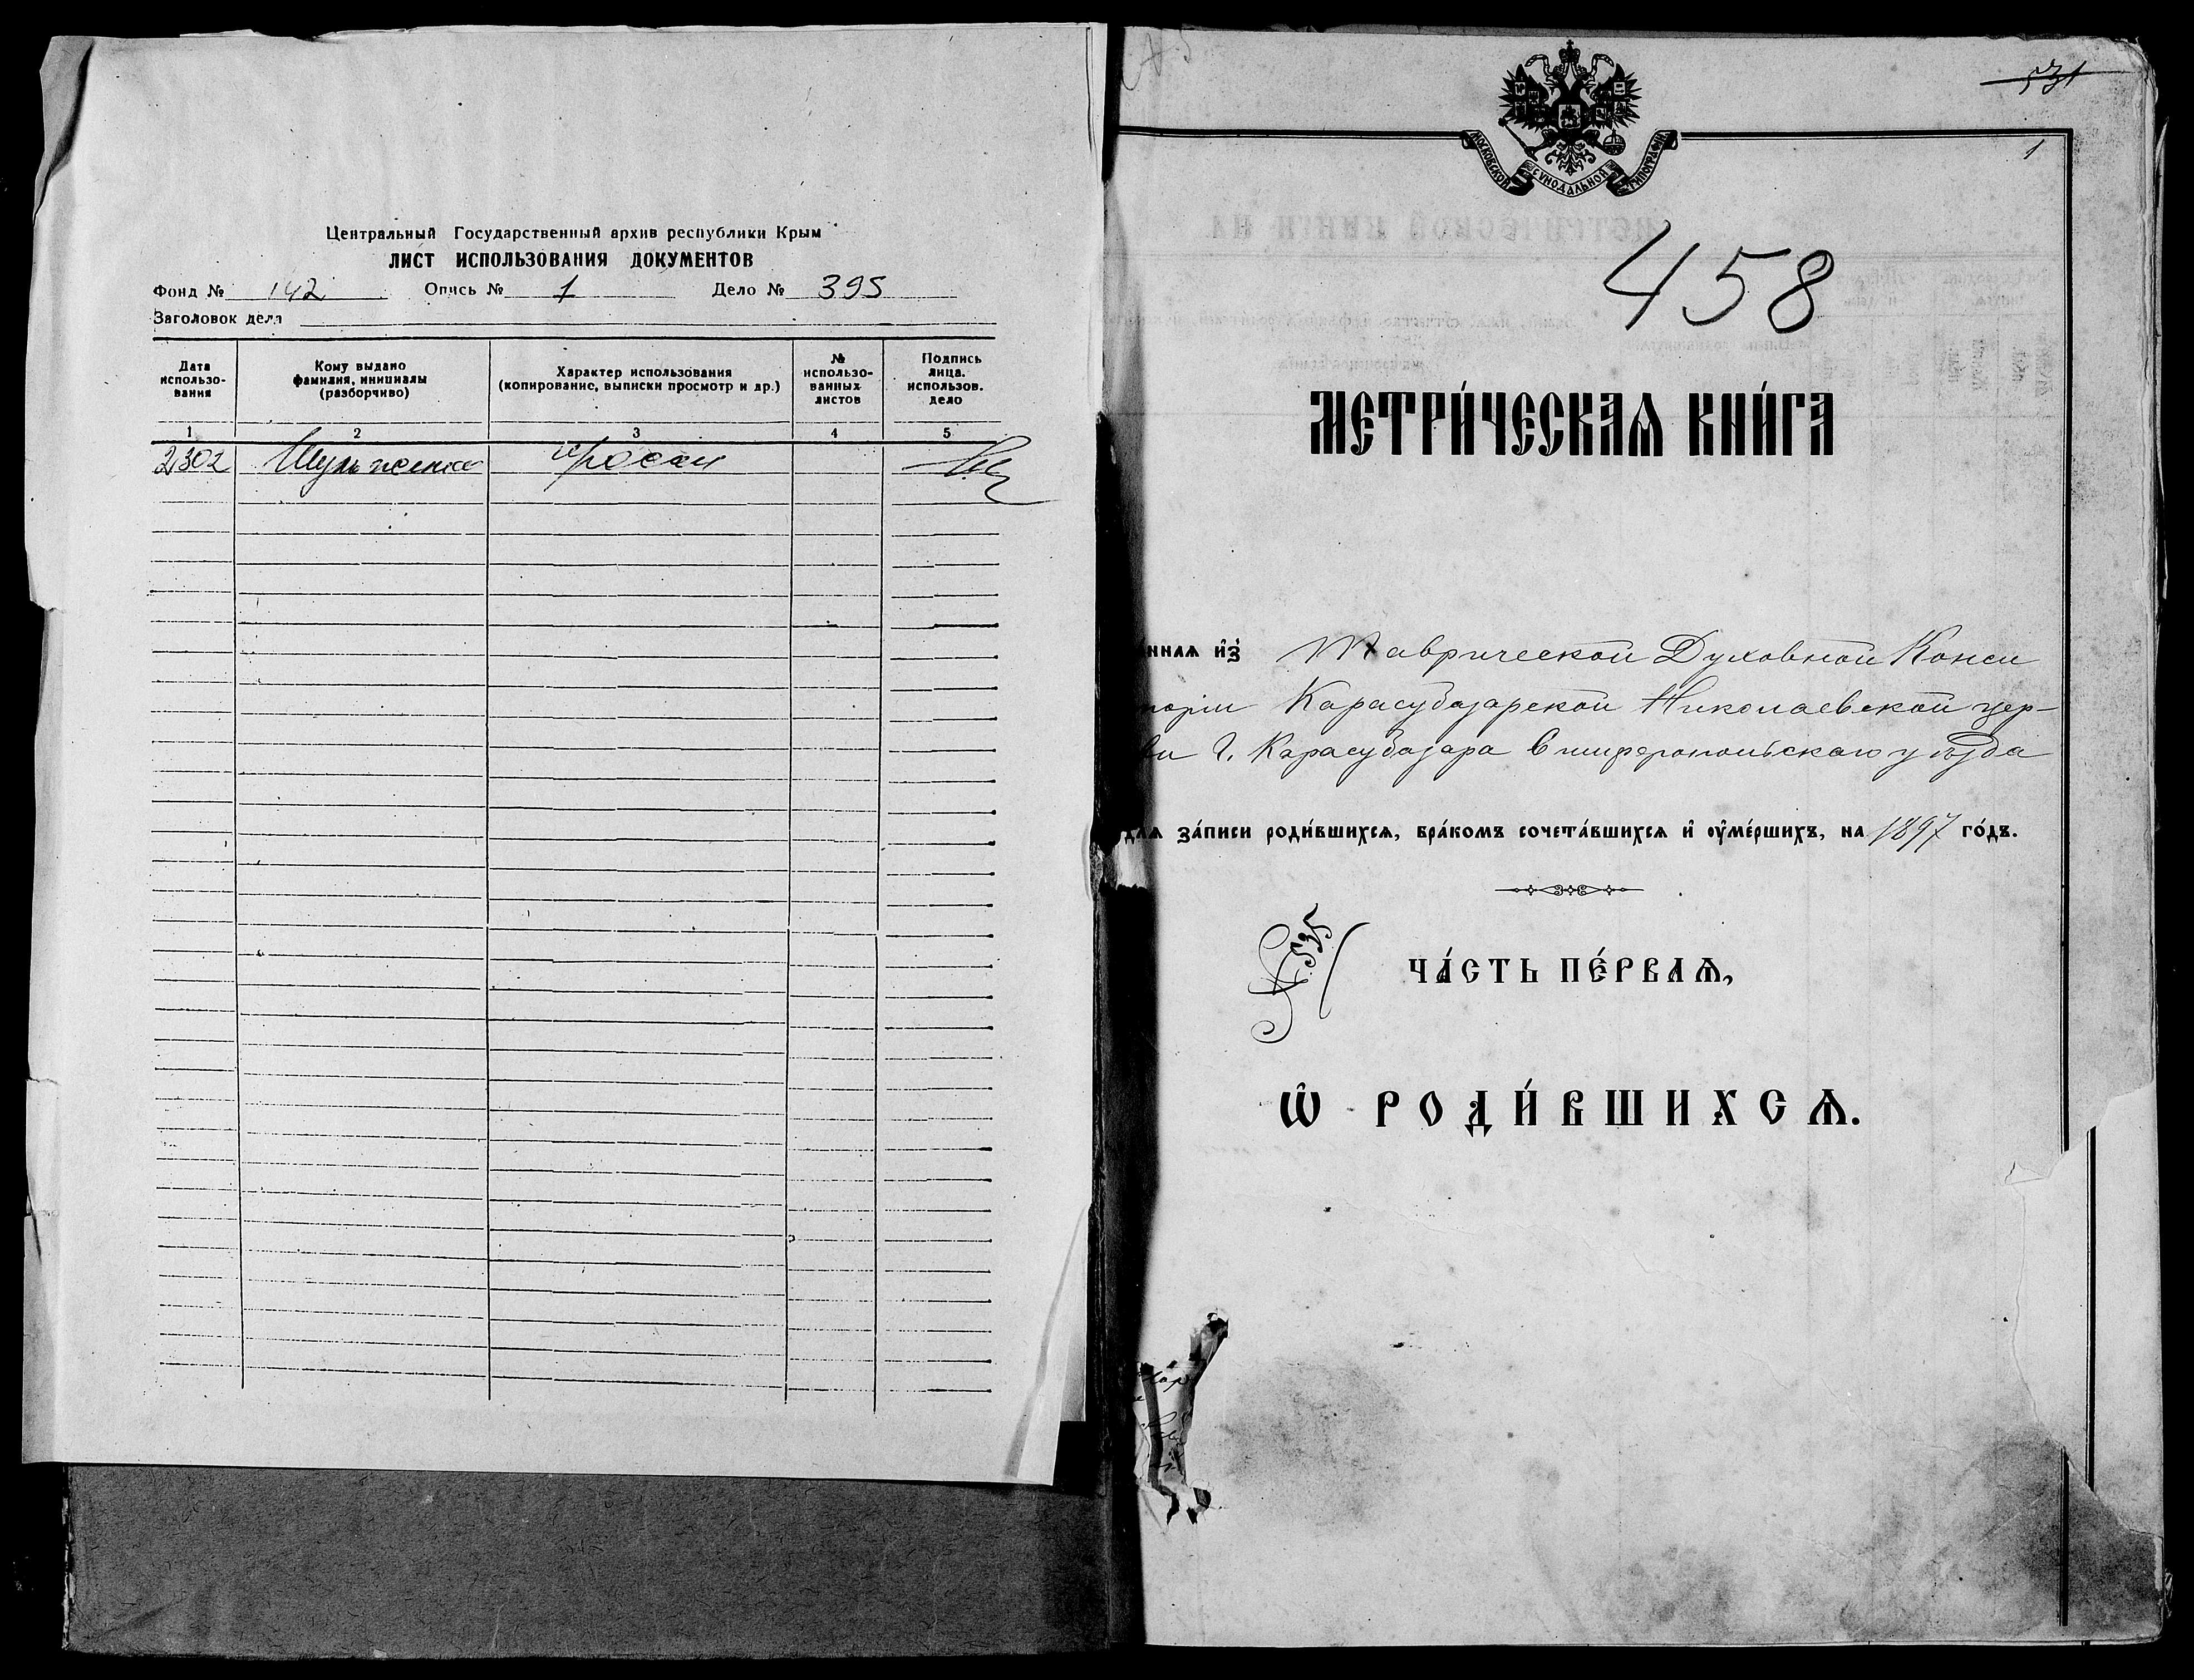 Центральный Государственный архив республики Крым
ЛИСТ ИСПОЛЬЗОВАНИЯ ДОКУМЕНТОВ
Фонд № 142 Опись № 1 Дело № 395
Заголовок дела
Дата использо-вания
Кому выдано фамилия, инициалы (разборчиво)
Характер использования (копирование, выписки просмотр и др.)
№ использо-ванных листов
Подпись лица. использов. дело
1 2 3 4 5
2302
531
1
МОСКОВСКОЙ СѴНОДАЛЬНОЙ ТИПОГРАФІИ
458
МЕТРИ́ЧЕСКАѦ КНИ́ГА
ннаѧ и҆з̾ Таврической Духовной Конси
торіи Карасубазарской Николаевской цер-
ви г. Карасубазара Симферопольскаго уѣзда
длѧ за́писи роди́вшихсѧ, бра́комъ сочета́вшихсѧ и҆ ᲂу҆ме́ршихъ, на 1897 го́дъ.
№ 535
ЧА́СТЬ ПЕ́РВАѦ,
Ѽ РОДИ́ВШИХСѦ.